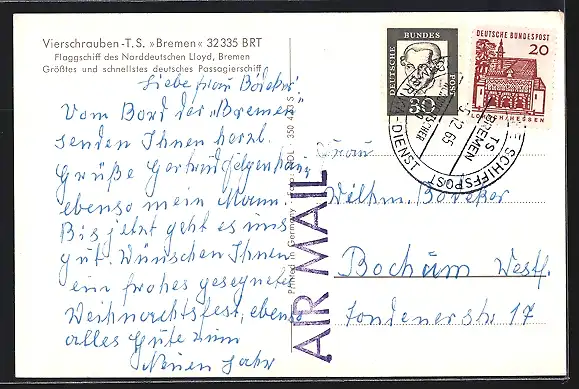 Vierschrauben-T.S. »Bremen« 32 335 BRT
Flaggschiff des Norddeutschen Lloyd, Bremen
Größtes und schnellstes deutsches Passagierschiff
Liebe Frau Böseker!
Vom Bord der „Bremen"
senden Ihnen herzl.
Grüße
ebenso mein Mann.
Bis jetzt geht es uns
gut. Wünschen Ihnen
ein frohes gesegnetes
Weihnachtsfest, ebenso
alles Gute zum
Neuen Jahr
Printed in Germany
350 473 S
AIR MAIL
DEUTSCHE BUNDESPOST
30
DEUTSCHE BUNDESPOST
20
LORSCH/HESSEN
TS BREMEN
12.65
SCHIFFSPOST
DIENST
Frau
Wilhm. Böseker
Bochum Westf.
17